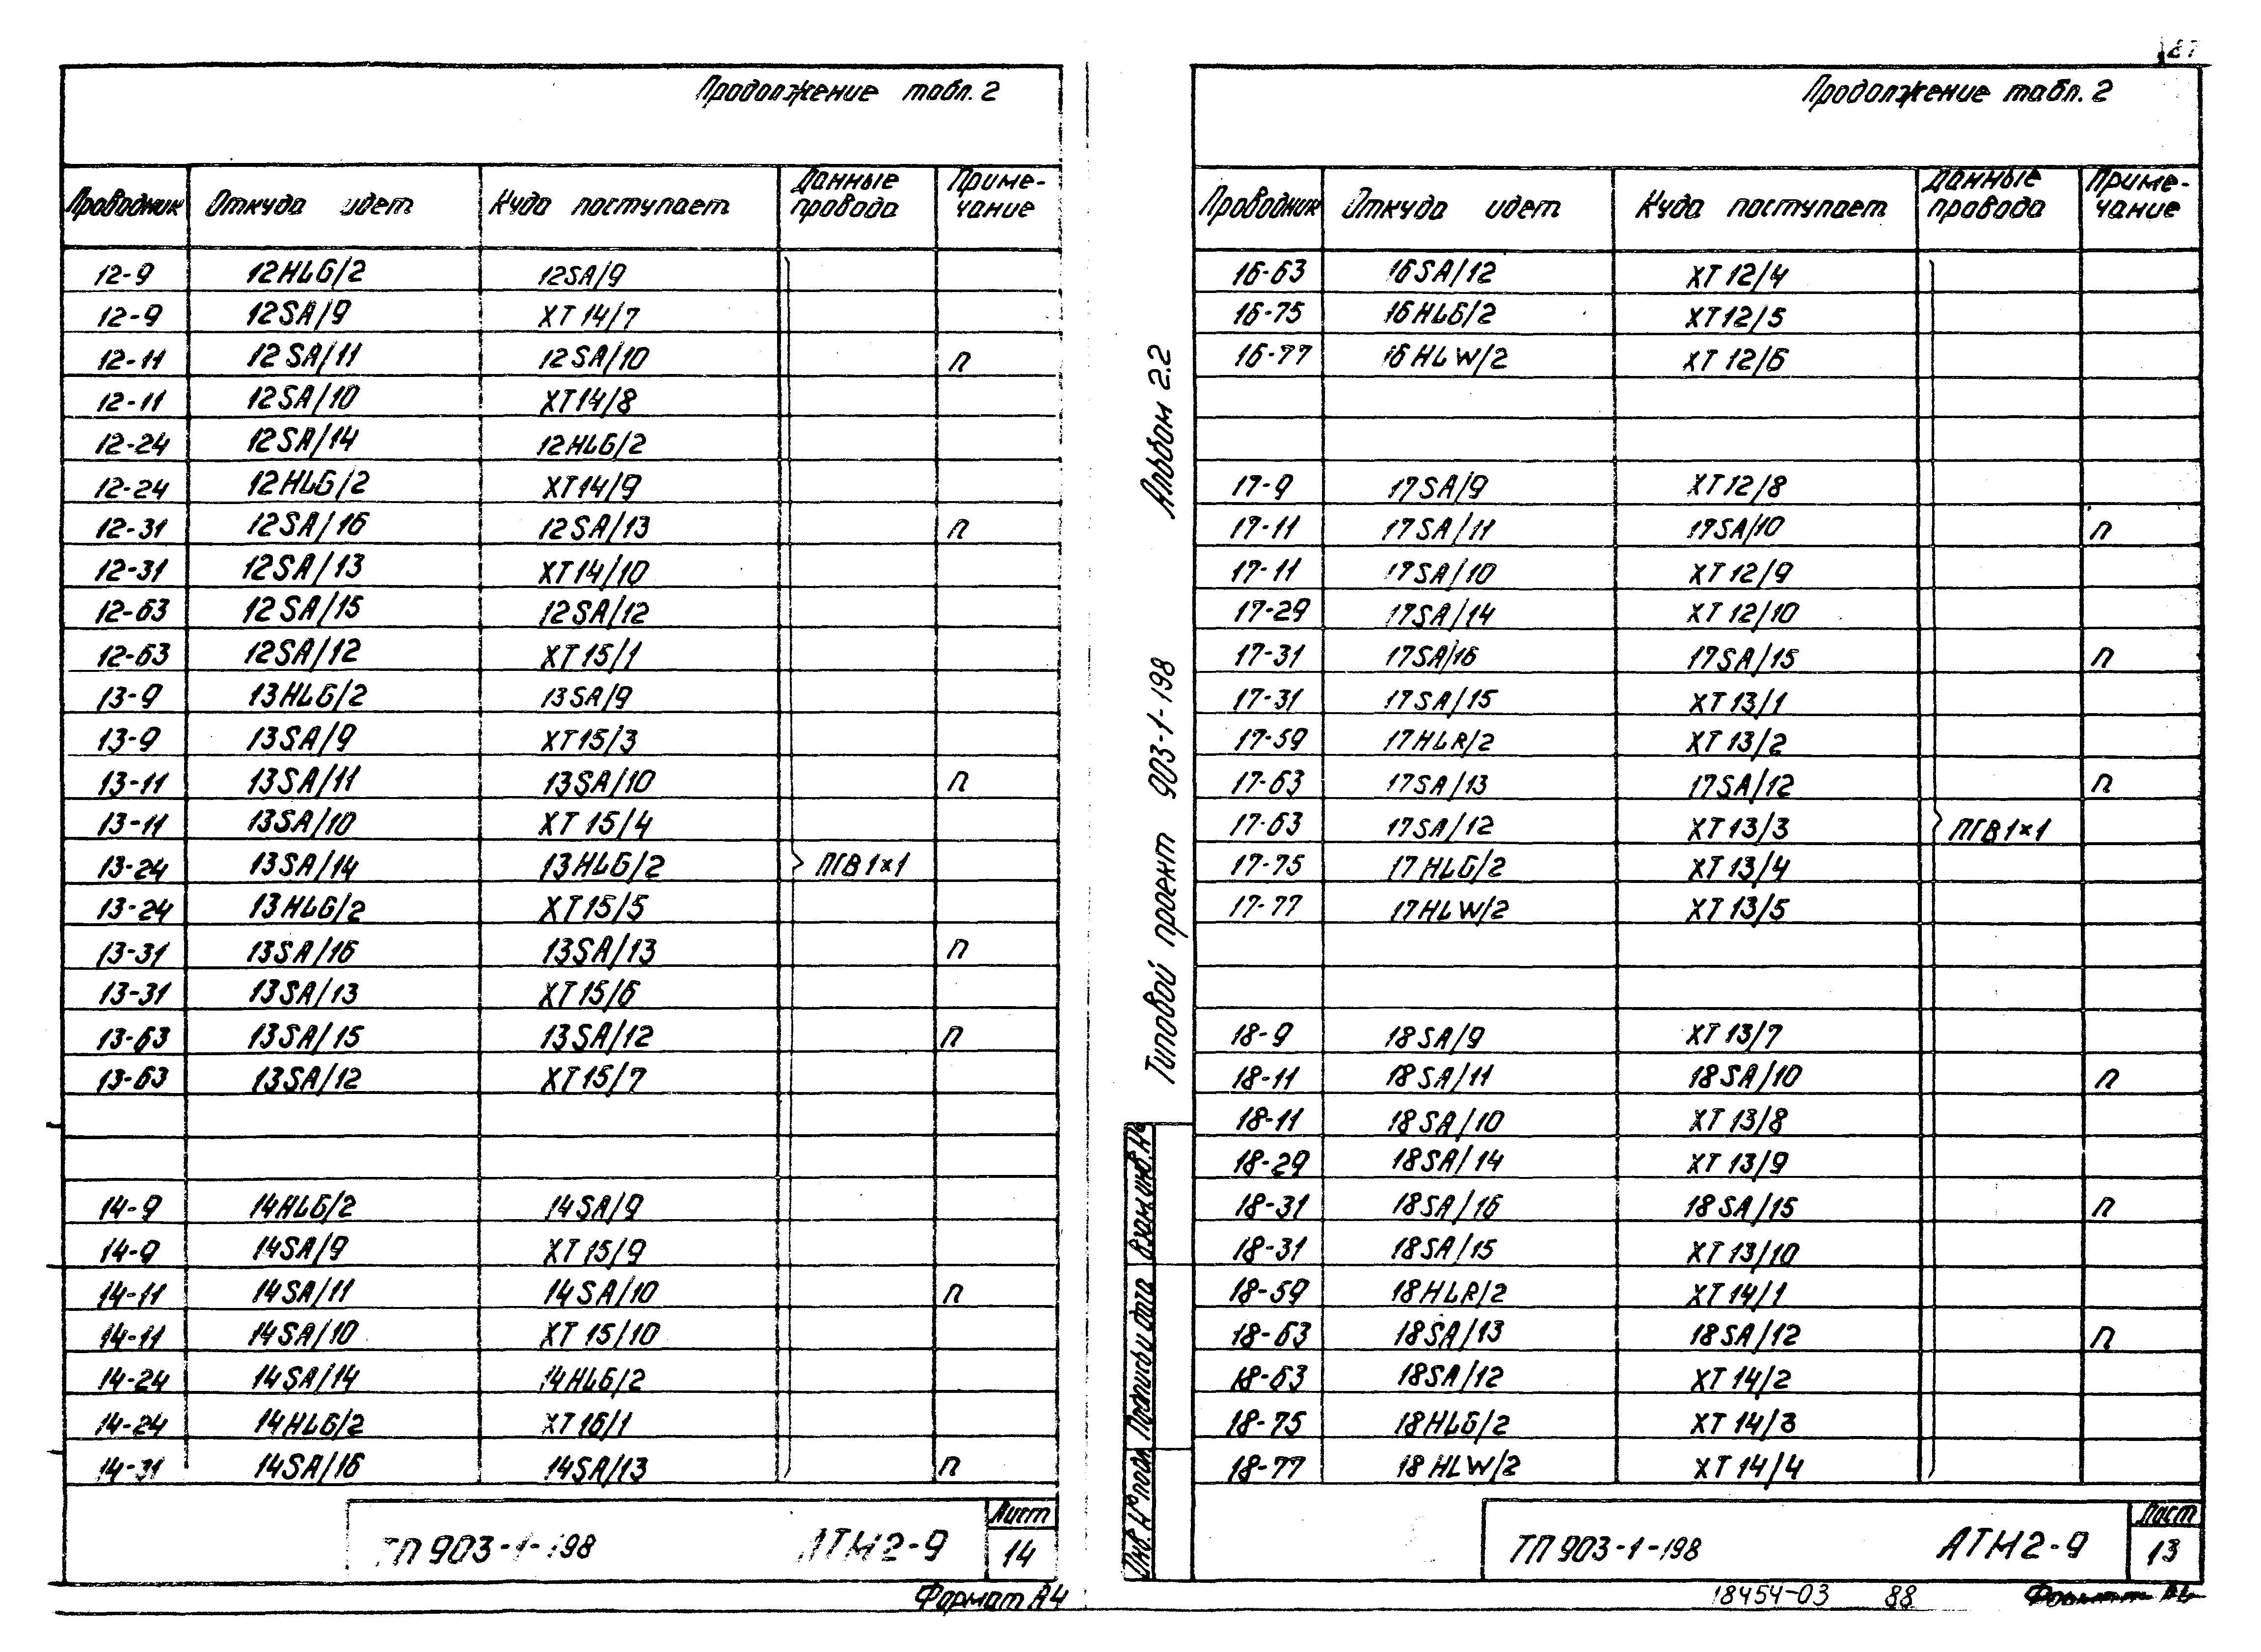 Продолжение табл. 2
Проводник Откуда идет Куда поступает Данные провода Приме-чание
12-9 12HLG/2 12SA/9
12-9 12SA/9 XT14/7
12-11 12SA/11 12SA/10 п
12-11 12SA/10 XT14/8
12-24 12SA/14 12HLG/2
12-24 12HLG/2 XT14/9
12-31 12SA/16 12SA/13 п
12-31 12SA/13 XT14/10
12-63 12SA/15 12SA/12
12-63 12SA/12 XT15/1
13-9 13HLG/2 13SA/9
13-9 13SA/9 XT15/3
13-11 13SA/11 13SA/10 п
13-11 13SA/10 XT15/4
13-24 13SA/14 13HLG/2 ПГВ1×1
13-24 13HLG/2 XT15/5
13-31 13SA/16 13SA/13 п
13-31 13SA/13 XT15/6
13-63 13SA/15 13SA/12 п
13-63 13SA/12 XT15/7
14-9 14HLG/2 14SA/9
14-9 14SA/9 XT15/9
14-11 14SA/11 14SA/10 п
14-11 14SA/10 XT15/10
14-24 14SA/14 14HLG/2
14-24 14HLG/2 XT16/1
14-31 14SA/16 14SA/13 п
ТП 903-1-198 АТМ2-9 Лист 14
Формат А4
Альбом 2.2
Типовой проект 903-1-198
Взам.инв.№
Подпись и дата
Инв.№ подл.
Продолжение табл. 2
Проводник Откуда идет Куда поступает Данные провода Приме-чание
16-63 16SA/12 XT12/4
16-75 16HLG/2 XT12/5
16-77 16HLW/2 XT12/6
17-9 17SA/9 XT12/8
17-11 17SA/11 17SA/10 п
17-11 17SA/10 XT12/9
17-29 17SA/14 XT12/10
17-31 17SA/16 17SA/15 п
17-31 17SA/15 XT13/1
17-59 17HLR/2 XT13/2
17-63 17SA/13 17SA/12 п
17-63 17SA/12 XT13/3 ПГВ1×1
17-75 17HLG/2 XT13/4
17-77 17HLW/2 XT13/5
18-9 18SA/9 XT13/7
18-11 18SA/11 18SA/10 п
18-11 18SA/10 XT13/8
18-29 18SA/14 XT13/9
18-31 18SA/16 18SA/15 п
18-31 18SA/15 XT13/10
18-59 18HLR/2 XT14/1
18-63 18SA/13 18SA/12 п
18-63 18SA/12 XT14/2
18-75 18HLG/2 XT14/3
18-77 18HLW/2 XT14/4
ТП 903-1-198 АТМ2-9 Лист 13
18454-03 88